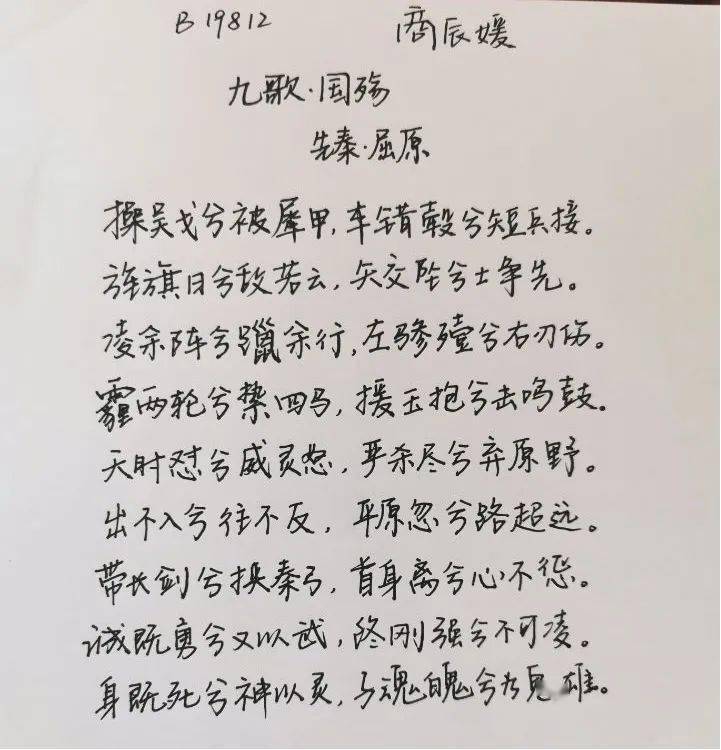 B19812 商辰媛
九歌·国殇
先秦·屈原
操吴戈兮被犀甲，车错毂兮短兵接。
旌旗日兮敌若云，矢交坠兮士争先。
凌余阵兮躐余行，左骖殪兮右刃伤。
霾两轮兮絷四马，援玉抱兮击鸣鼓。
天时怼兮威灵怒，严杀尽兮弃原野。
出不入兮往不反，平原忽兮路超远。
带长剑兮挟秦弓，首身离兮心不惩。
诚既勇兮又以武，终刚强兮不可凌。
身既死兮神以灵，子魂魄兮为鬼雄。